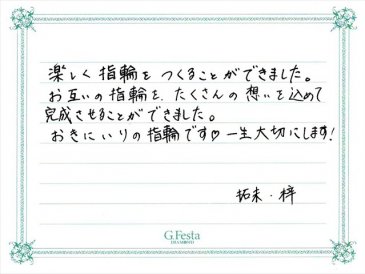 楽しく指輪をつくることができました。
お互いの指輪を、たくさんの想いを込めて
完成させることができました。
おきにいりの指輪です♡一生大切にします!
拓未・梓
G.Festa